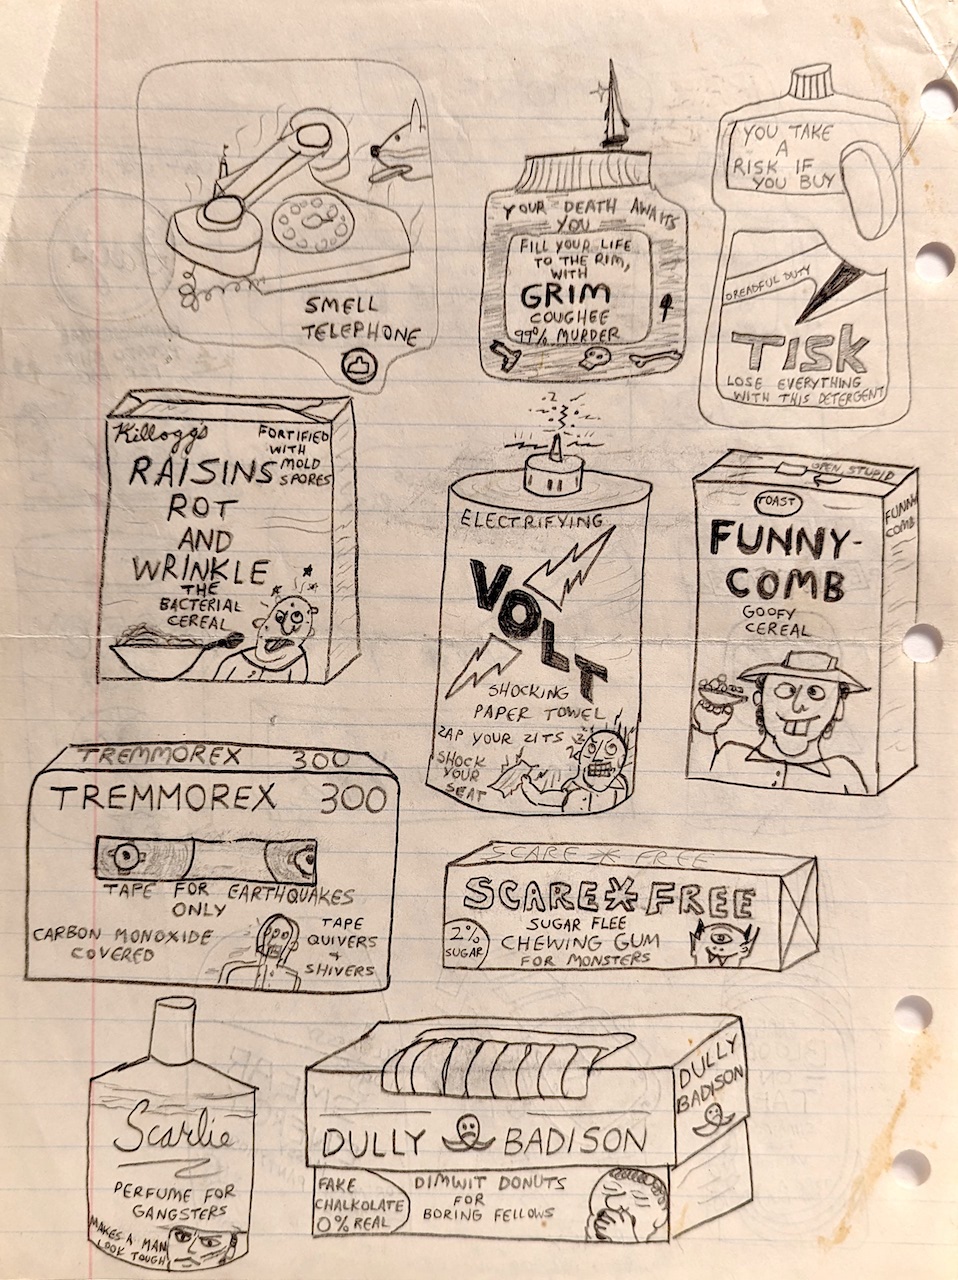 SMELL
TELEPHONE
YOUR DEATH AWAITS
YOU
FILL YOUR LIFE
TO THE RIM,
WITH
GRIM
COUGHEE
99% MURDER
YOU TAKE
A
RISK IF
YOU BUY
DREADFUL DUTY
TISK
LOSE EVERYTHING
WITH THIS DETERGENT
Killogg's
FORTIFIED
WITH
MOLD
SPORES
RAISINS
ROT
AND
WRINKLE
THE
BACTERIAL
CEREAL
ELECTRIFYING
VOLT
SHOCKING
PAPER TOWEL
ZAP YOUR ZITS
SHOCK
YOUR
SEAT
OPEN, STUPID
TOAST
FUNNY-
COMB
GOOFY
CEREAL
FUNNY
COMB
TREMMOREX 300
TREMMOREX 300
TAPE FOR EARTHQUAKES
ONLY
CARBON MONOXIDE
COVERED
TAPE
QUIVERS
+
SHIVERS
SCARE * FREE
SCARE*FREE
SUGAR FLEE
CHEWING GUM
FOR MONSTERS
2%
SUGAR
Scarlie
PERFUME FOR
GANGSTERS
MAKES A MAN
LOOK TOUGH
DULLY BADISON
DULLY
BADISON
FAKE
CHALKOLATE
0% REAL
DIMWIT DONUTS
FOR
BORING FELLOWS